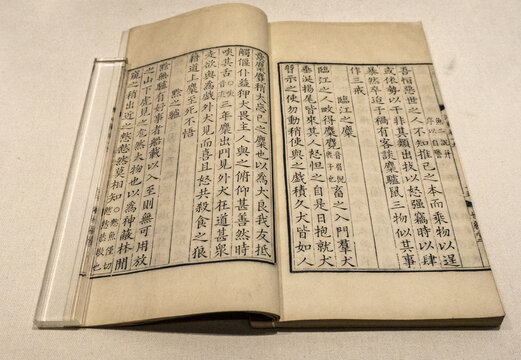 吾恒惡世之人不知推己之本而乘物以逞
或依勢以干非其類出技以怒強竊時以肆
暴然卒迨于禍有客談麋驢鼠三物似其事
作三戒
臨江之麋
臨江之人畋得麋麑畜之入門羣犬
垂涎揚尾皆來其人怒怛之自是日抱就犬
習示之使勿動稍使與之戲積久犬皆如人
意麋麑稍大忘己之麋也以為犬良我友抵
觸偃仆益狎犬畏主人與之俯仰甚善然時
啖其舌三年麋出門見外犬在道甚衆
走欲與為戲外犬見而喜且怒共殺食之狼
藉道上麋至死不悟
黔之驢
黔無驢有好事者船載以入至則無可用放
之山下虎見之尨然大物也以為神蔽林間
窺之稍出近之憖憖然莫相知